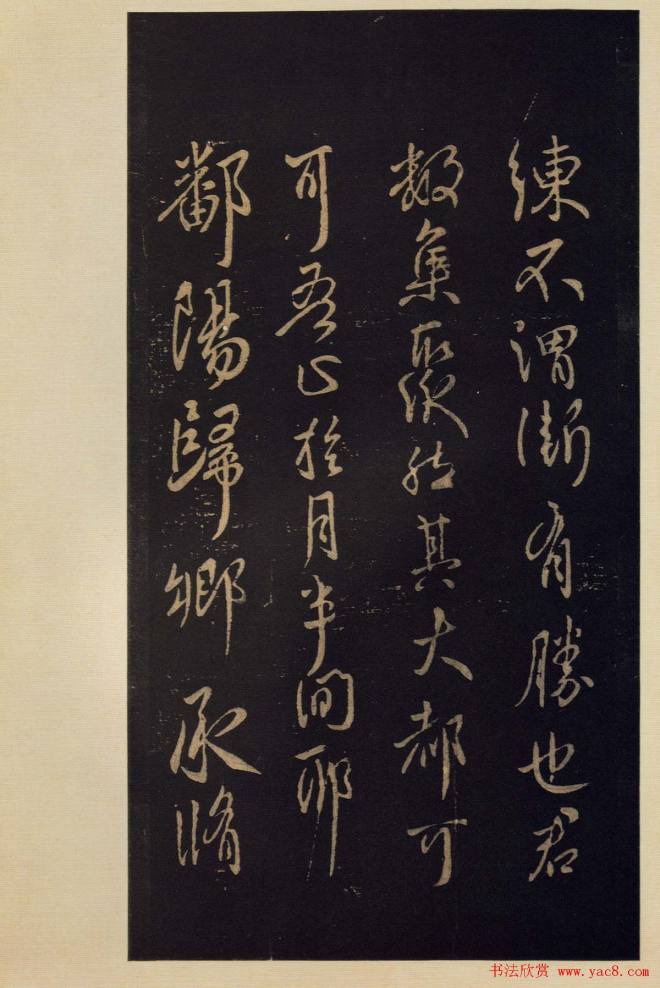 練不謂漸有勝也君
數集聚然其大都可
可吾止於月半間耶
鄱陽歸鄉 承脩
书法欣赏 www.yac8.com